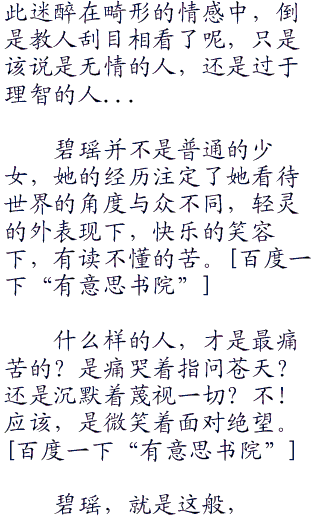 此迷醉在畸形的情感中，倒
是教人刮目相看了呢，只是
该说是无情的人，还是过于
理智的人...
碧瑶并不是普通的少
女，她的经历注定了她看待
世界的角度与众不同，轻灵
的外表现下，快乐的笑容
下，有读不懂的苦。[百度一
下“有意思书院”]
什么样的人，才是最痛
苦的？是痛哭着指问苍天？
还是沉默着蔑视一切？不！
应该，是微笑着面对绝望。
[百度一下“有意思书院”]
碧瑶，就是这般，